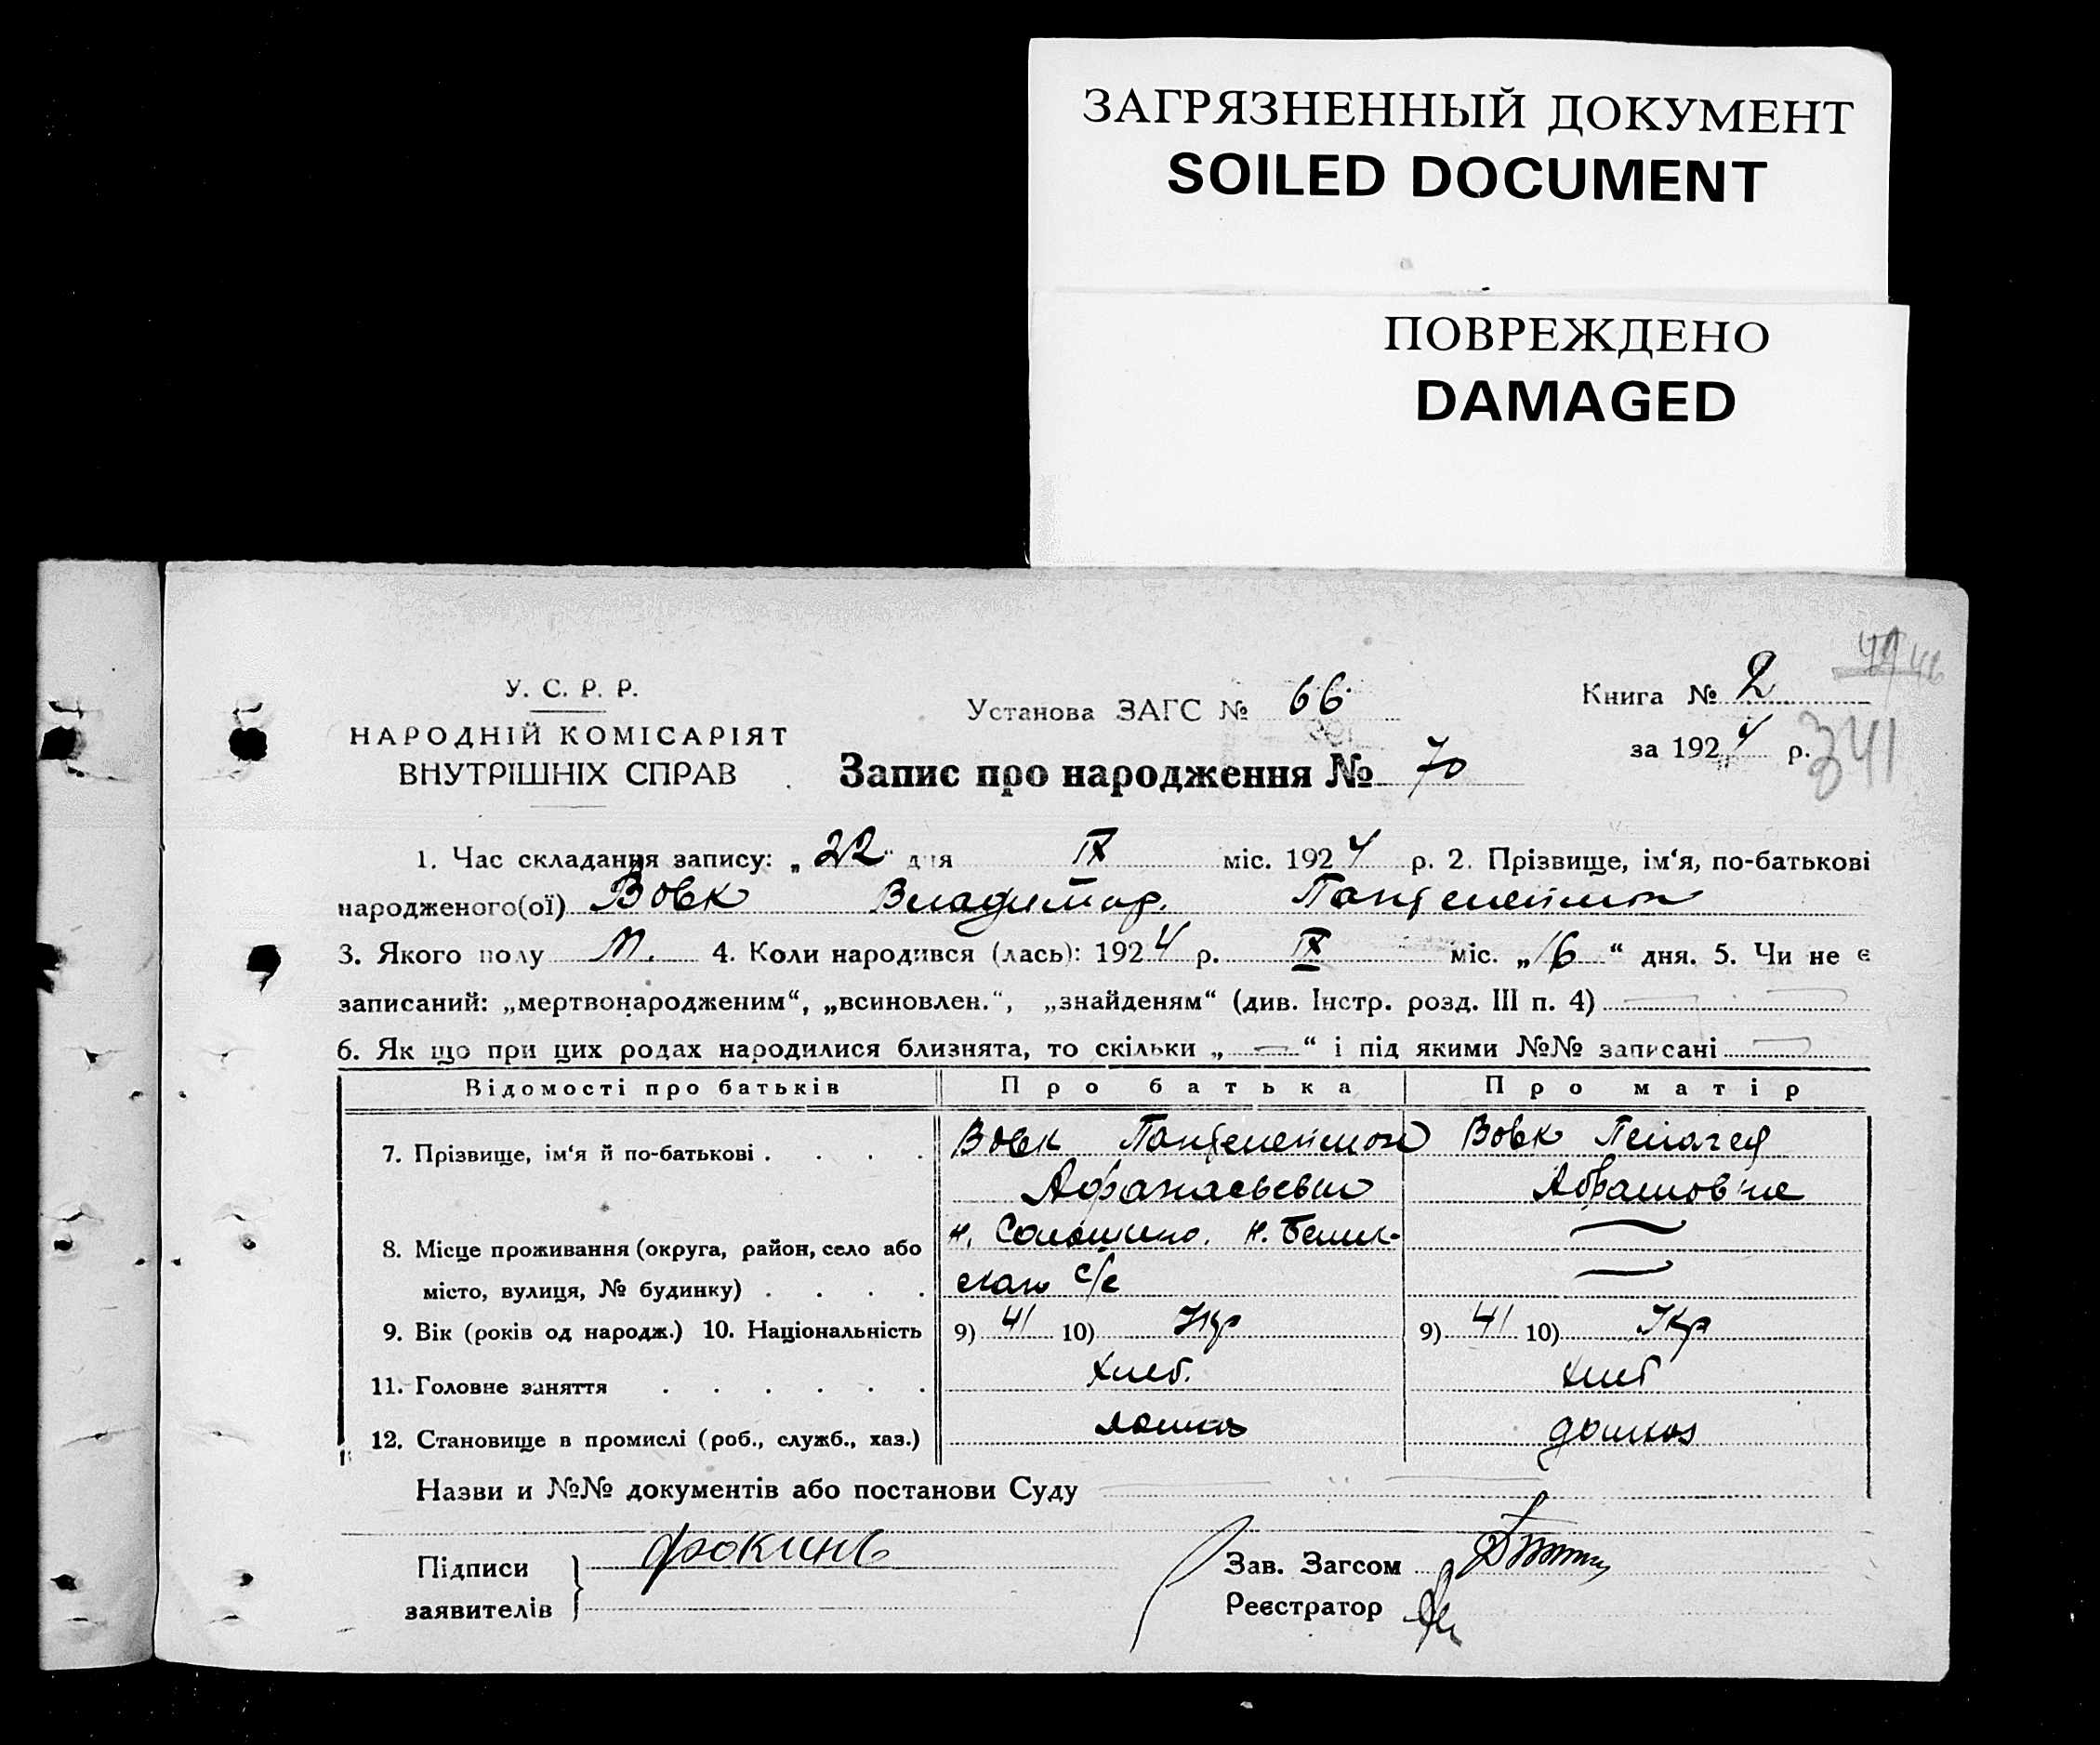 ЗАГРЯЗНЕННЫЙ ДОКУМЕНТ
SOILED DOCUMENT
ПОВРЕЖДЕНО
DAMAGED
46
У. С. Р. Р.
НАРОДНІЙ КОМІСАРІЯТ
ВНУТРІШНІХ СПРАВ
Установа ЗАГС № 66
Книга № 2
за 1924 р.
341
Запис про народження № 70
1. Час складання запису: „22“ дня IX міс. 1924 р. 2. Прізвище, ім‘я, по-батькові
народженого(ої) Вовк Владимир. Пантелеймон
3. Якого полу М. 4. Коли народився (лась): 1924 р. IX міс. „16“ дня. 5. Чи не є
записаний: „мертвонародженим“, „всиновлен.“, „знайденям“ (див. Інстр. розд. III п. 4) —
6. Як що при цих родах народилися близнята, то скільки „—“ і під якими №№ записані —
Відомості про батьків Про батька Про матір
7. Прізвище, ім‘я й по-батькові . . . . Вовк Пантелеймон Вовк Пелагея
Афанасьевич Абрамовна
8. Місце проживання (округа, район, село або Н. Солошино. Н. Белик- —
місто, вулиця, № будинку) . . . . с/с —
9. Вік (років од народж.) 10. Національність 9) 41 10) Укр 9) 41 10) Укр
11. Головне заняття . . . . . . хлеб. хлеб
12. Становище в промислі (роб., служб., хаз.)
Назви и №№ документів або постанови Суду —
Підписи
заявителів
Зав. Загсом
Реєстратор